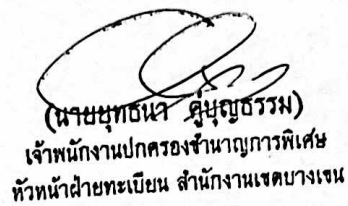 (นายยุทธนา คู่บุญธรรม)
เจ้าพนักงานปกครองชำนาญการพิเศษ
หัวหน้าฝ่ายทะเบียน สำนักงานเขตบางเขน